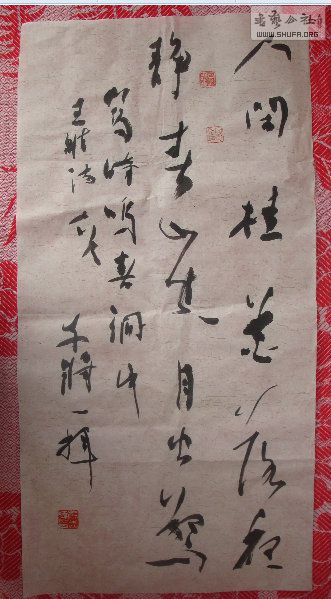 书艺公社
WWW.SHUFA.ORG
人閒桂花落夜
静春山空月出驚
時鳴春涧中
王維诗
一挥